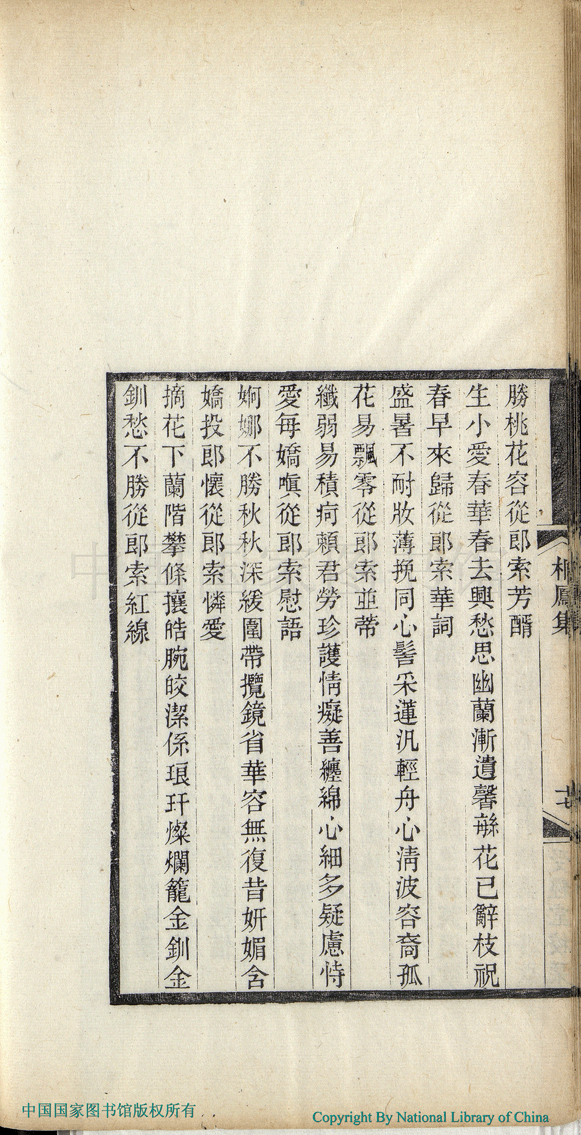 勝桃花容從郎索芳醑
生小愛春華春去興愁思幽蘭漸遺馨緐花已辭枝祝
春早來歸從郎索華詞
盛暑不耐妝薄挽同心髻采蓮汎輕舟心清波容裔孤
花易飄零從郎索並蒂
纖弱易積疴賴君勞珍護情癡善纏綿心細多疑慮恃
愛每嬌嗔從郎索慰語
婀娜不勝秋秋深緩圍帶攬鏡省華容無復昔妍媚含
嬌投郎懷從郎索憐愛
摘花下蘭階攀條攘皓腕皎潔係琅玕燦爛籠金釧金
釧愁不勝從郎索紅線
桐鳳集
中国国家图书馆版权所有
Copyright By National Library of China